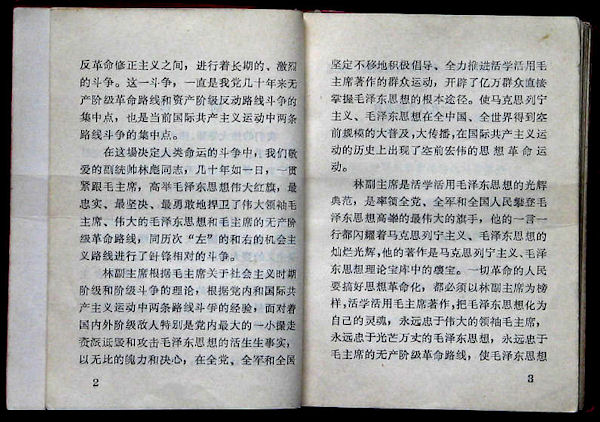 反革命修正主义之间，进行着长期的、激烈
的斗争。这一斗争，一直是我党几十年来无
产阶级革命路线和资产阶级反动路线斗争的
集中点，也是当前国际共产主义运动中两条
路线斗争的集中点。
在这场决定人类命运的斗争中，我们敬
爱的副统帅林彪同志，几十年如一日，一贯
紧跟毛主席，高举毛泽东思想伟大红旗，最
忠实、最坚决、最勇敢地捍卫了伟大领袖毛
主席、伟大的毛泽东思想和毛主席的无产阶
级革命路线，同历次“左”的和右的机会主
义路线进行了针锋相对的斗争。
林副主席根据毛主席关于社会主义时期
阶级和阶级斗争的理论，根据党内和国际共
产主义运动中两条路线斗争的经验，面对着
国内外阶级敌人特别是党内最大的一小撮走
资派诋毁和攻击毛泽东思想的活生生事实，
以无比的魄力和决心，在全党、全军和全国
2
坚定不移地积极倡导、全力推进活学活用毛
主席著作的群众运动，开辟了亿万群众直接
掌握毛泽东思想的根本途径。使马克思列宁
主义、毛泽东思想在全中国、全世界得到空
前规模的大普及，大传播，在国际共产主义运
动的历史上出现了空前宏伟的思想革命运
动。
林副主席是活学活用毛泽东思想的光辉
典范，是率领全党、全军和全国人民攀登毛
泽东思想高峯的最伟大的旗手，他的一言一
行都闪耀着马克思列宁主义、毛泽东思想的
灿烂光辉，他的著作是马克思列宁主义、毛泽
东思想理论宝库中的瓌宝。一切革命的人民
要搞好思想革命化，都必须以林副主席为榜
样，活学活用毛主席著作，把毛泽东思想化为
自己的灵魂，永远忠于伟大的领袖毛主席，
永远忠于光芒万丈的毛泽东思想，永远忠于
毛主席的无产阶级革命路线，使毛泽东思想
3